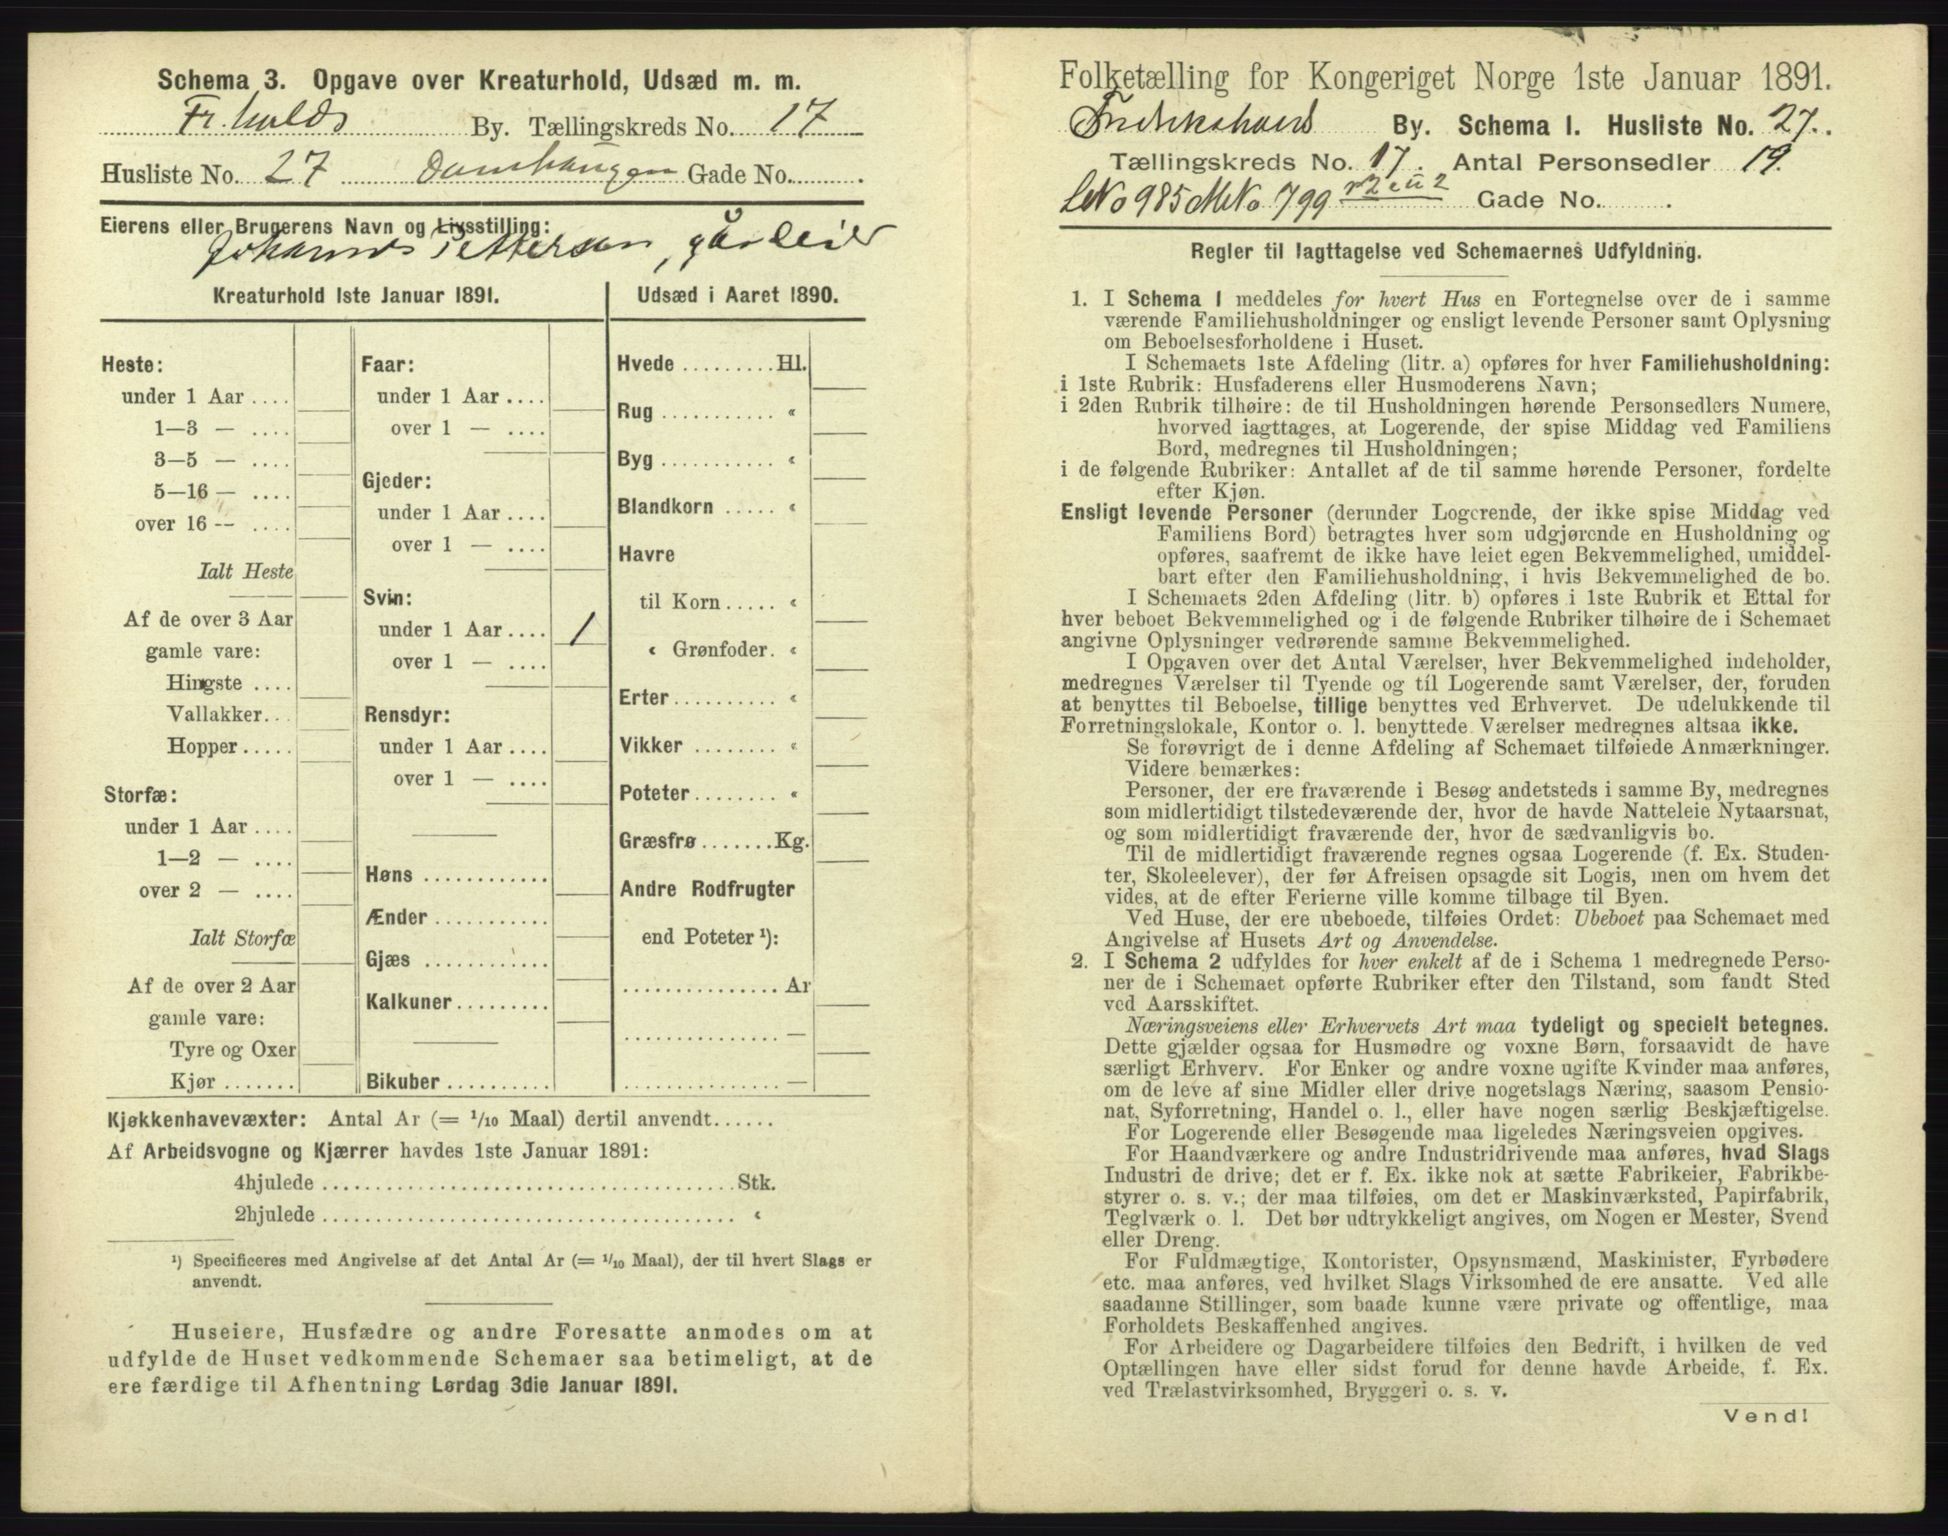 Schema 3. Opgave over Kreaturhold, Udsæd m. m.
Fr.halds By. Tællingskreds No. 17
Husliste No. 27 Damhaugen Gade No. .
Eierens eller Brugerens Navn og Livsstilling:
Johannes Pettersen, gåreier
Kreaturhold 1ste Januar 1891.
Heste:
under 1 Aar ....
1—3 — ....
3—5 — ....
5—16 — ....
over 16 — ....
Ialt Heste
Af de over 3 Aar
gamle vare:
Hingste ....
Vallakker...
Hopper .....
Storfæ:
under 1 Aar ....
1—2 — ....
over 2 — ....
Ialt Storfæ
Af de over 2 Aar
gamle vare:
Tyre og Oxer
Kjør .......
Faar:
under 1 Aar ....
over 1 — ....
Gjeder:
under 1 Aar ....
over 1 — ....
Svin:
under 1 Aar .... 1
over 1 — ....
Rensdyr:
under 1 Aar ....
over 1 — ....
Høns ............
Ænder ...........
Gjæs ............
Kalkuner.........
Bikuber ..........
Udsæd i Aaret 1890.
Hvede .........Hl.
Rug ........... «
Byg ........... «
Blandkorn ..... «
Havre
til Korn ..... «
« Grønfoder. «
Erter.......... «
Vikker ........ «
Poteter ........ «
Græsfrø .......Kg.
Andre Rodfrugter
end Poteter ¹):
............... Ar
............... —
............... —
Kjøkkenhavevæxter: Antal Ar (= 1/10 Maal) dertil anvendt......
Af Arbeidsvogne og Kjærrer havdes 1ste Januar 1891:
4hjulede ......................................Stk.
2hjulede ...................................... «
¹) Specificeres med Angivelse af det Antal Ar (= 1/10 Maal), der til hvert Slags er
anvendt.
Huseiere, Husfædre og andre Foresatte anmodes om at
udfylde de Huset vedkommende Schemaer saa betimeligt, at de
ere færdige til Afhentning Lørdag 3die Januar 1891.
Folketælling for Kongeriget Norge 1ste Januar 1891.
Fredrikshald By. Schema 1. Husliste No. 27.
Tællingskreds No. 17. Antal Personsedler 19.
LNo 985 MNo 799 Gade No. .
Regler til Iagttagelse ved Schemaernes Udfyldning.
1. I Schema 1 meddeles for hvert Hus en Fortegnelse over de i samme
værende Familiehusholdninger og ensligt levende Personer samt Oplysning
om Beboelsesforholdene i Huset.
I Schemaets 1ste Afdeling (litr. a) opføres for hver Familiehusholdning:
i 1ste Rubrik: Husfaderens eller Husmoderens Navn;
i 2den Rubrik tilhøire: de til Husholdningen hørende Personsedlers Numere,
hvorved iagttages, at Logerende, der spise Middag ved Familiens
Bord, medregnes til Husholdningen;
i de følgende Rubriker: Antallet af de til samme hørende Personer, fordelte
efter Kjøn.
Ensligt levende Personer (derunder Logerende, der ikke spise Middag ved
Familiens Bord) betragtes hver som udgjørende en Husholdning og
opføres, saafremt de ikke have leiet egen Bekvemmelighed, umiddel-
bart efter den Familiehusholdning, i hvis Bekvemmelighed de bo.
I Schemaets 2den Afdeling (litr. b) opføres i 1ste Rubrik et Ettal for
hver beboet Bekvemmelighed og i de følgende Rubriker tilhøire de i Schemaet
angivne Oplysninger vedrørende samme Bekvemmelighed.
I Opgaven over det Antal Værelser, hver Bekvemmelighed indeholder,
medregnes Værelser til Tyende og til Logerende samt Værelser, der, foruden
at benyttes til Beboelse, tillige benyttes ved Erhvervet. De udelukkende til
Forretningslokale, Kontor o. l. benyttede Værelser medregnes altsaa ikke.
Se forøvrigt de i denne Afdeling af Schemaet tilføiede Anmærkninger.
Videre bemærkes:
Personer, der ere fraværende i Besøg andetsteds i samme By, medregnes
som midlertidigt tilstedeværende der, hvor de havde Natteleie Nytaarsnat,
og som midlertidigt fraværende der, hvor de sædvanligvis bo.
Til de midlertidigt fraværende regnes ogsaa Logerende (f. Ex. Studen-
ter, Skoleelever), der før Afreisen opsagde sit Logis, men om hvem det
vides, at de efter Ferierne ville komme tilbage til Byen.
Ved Huse, der ere ubeboede, tilføies Ordet: Ubeboet paa Schemaet med
Angivelse af Husets Art og Anvendelse.
2. I Schema 2 udfyldes for hver enkelt af de i Schema 1 medregnede Perso-
ner de i Schemaet opførte Rubriker efter den Tilstand, som fandt Sted
ved Aarsskiftet.
Næringsveiens eller Erhvervets Art maa tydeligt og specielt betegnes.
Dette gjælder ogsaa for Husmødre og voxne Børn, forsaavidt de have
særligt Erhverv. For Enker og andre voxne ugifte Kvinder maa anføres,
om de leve af sine Midler eller drive nogetslags Næring, saasom Pensio-
nat, Syforretning, Handel o. l., eller have nogen særlig Beskjæftigelse.
For Logerende eller Besøgende maa ligeledes Næringsveien opgives.
For Haandværkere og andre Industridrivende maa anføres, hvad Slags
Industri de drive; det er f. Ex. ikke nok at sætte Fabrikeier, Fabrikbe-
styrer o. s. v.; der maa tilføies, om det er Maskinværksted, Papirfabrik,
Teglværk o. l. Det bør udtrykkeligt angives, om Nogen er Mester, Svend
eller Dreng.
For Fuldmægtige, Kontorister, Opsynsmænd, Maskinister, Fyrbødere
etc. maa anføres, ved hvilket Slags Virksomhed de ere ansatte. Ved alle
saadanne Stillinger, som baade kunne være private og offentlige, maa
Forholdets Beskaffenhed angives.
For Arbeidere og Dagarbeidere tilføies den Bedrift, i hvilken de ved
Optællingen have eller sidst forud for denne havde Arbeide, f. Ex.
ved Trælastvirksomhed, Bryggeri o. s. v.
Vend!